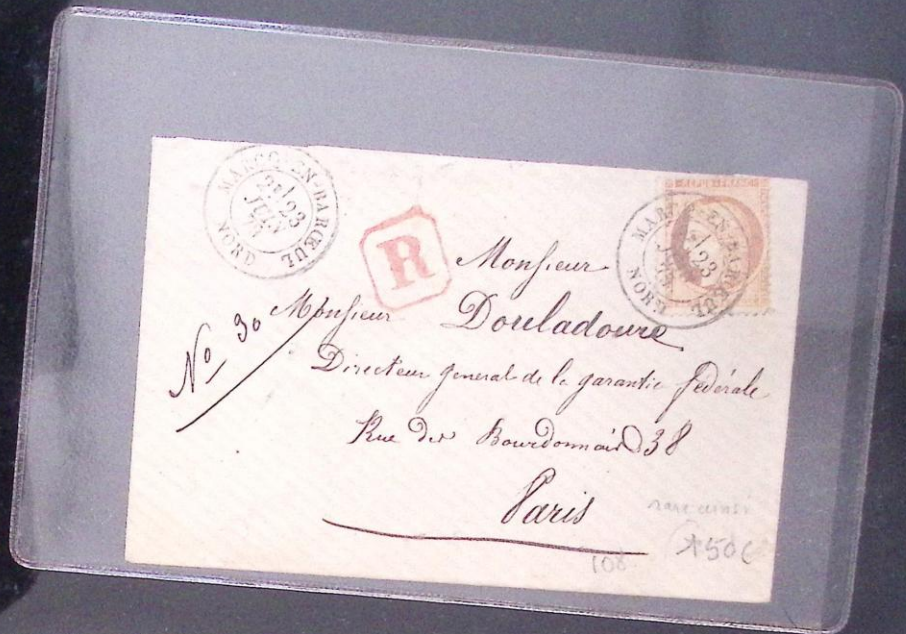 MARCQ-EN-BARŒUL
2E/
23
JUIN
NORD
R
MARCQ-EN-BARŒUL
2E/
23
NORD
No 30
Monsieur
Monsieur Douladoure
Directeur general de la garantie fédérale
Rue des Bourdonnais 38
Paris
rare ainsi
108
*50€